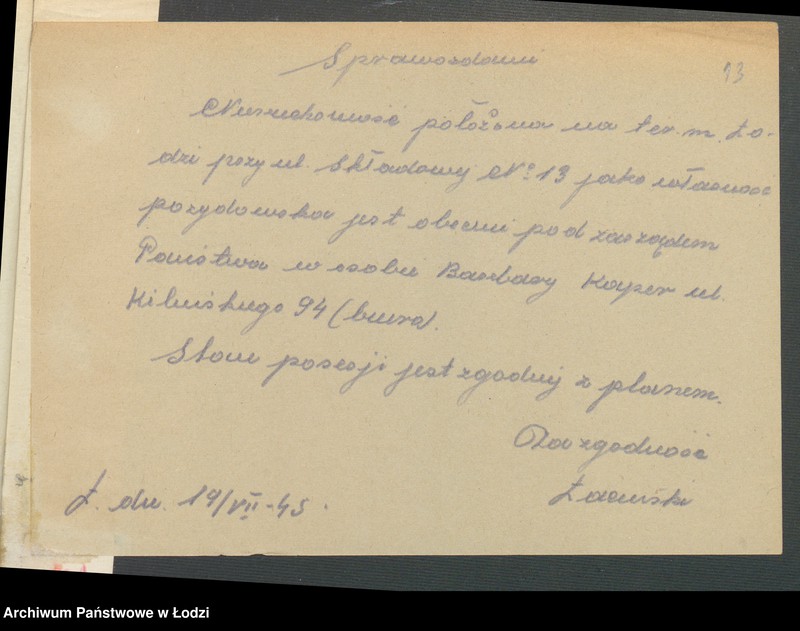 Sprawozdanie
13
Nieruchomość położona na ter. m. Ło-
dzi przy ul. Składowej No 13 jako własność
pożydowska jest obecnie pod zarządem
Państwa w osobie Barbary Kayzer ul.
Kilińskiego 94 (biuro).
Stan posesji jest zgodny z planem.
Za zgodność
Ł. dn. 19/VII-45.
Archiwum Państwowe w Łodzi